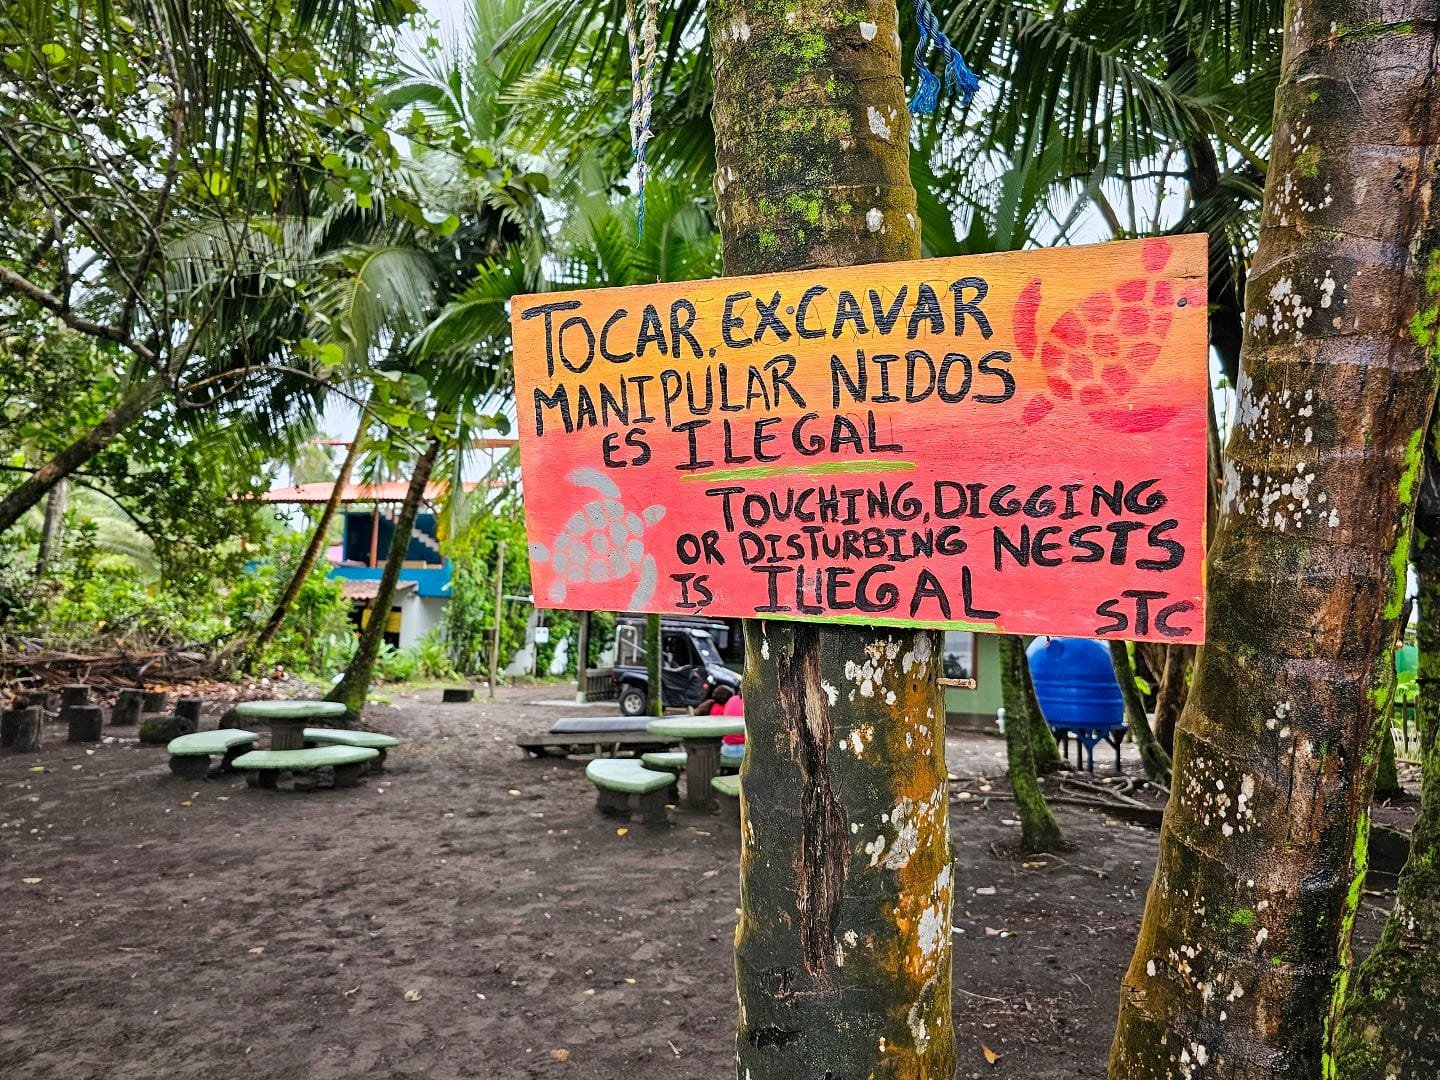 TOCAR, EX·CAVAR
MANIPULAR NIDOS
ES ILEGAL
TOUCHING, DIGGING
OR DISTURBING NESTS
IS ILLEGAL
STC